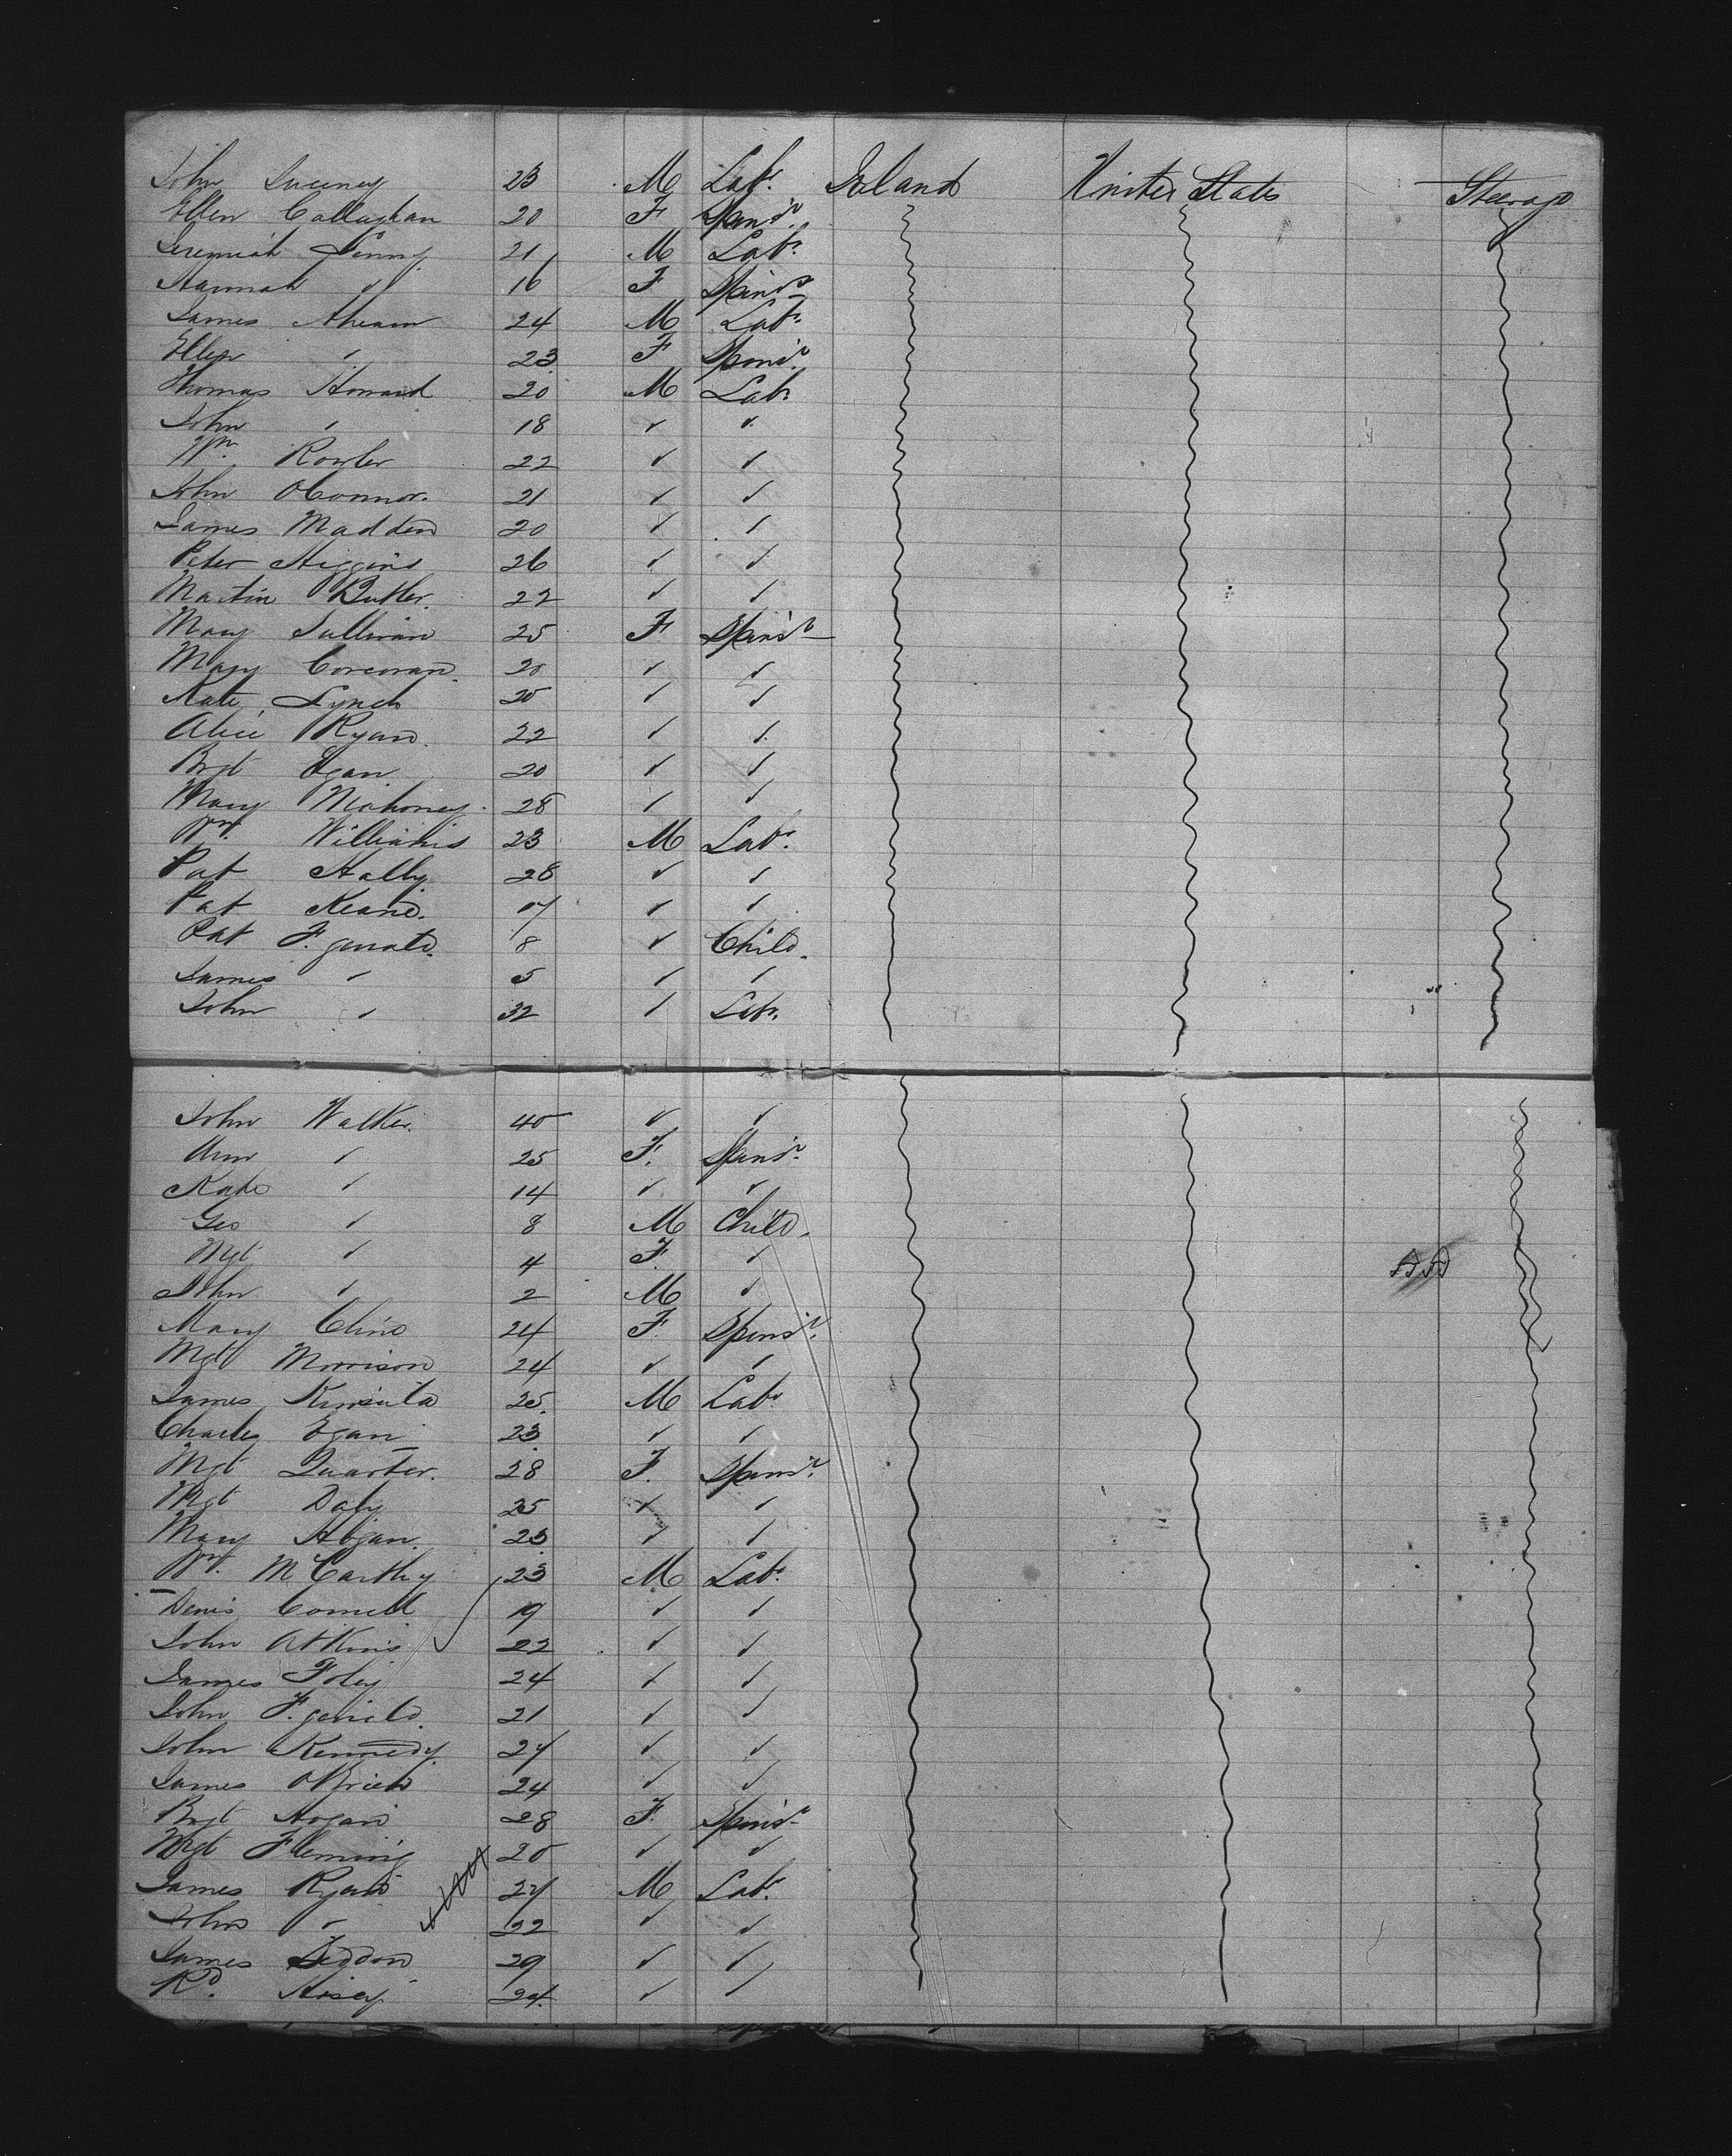 John Sweeney 23 M Labr. Ireland United States Steerage
Ellen Callaghan 20 F Spinsr.
Jeremiah 21 M Labr.
Hannah " 16 F Spinsr
James Ahearn 24 M Labr.
Ellen " 23 F Spinsr.
Thomas Howard 20 M Labr.
John " 18 " "
Wm. 22 " "
John OConnor. 21 " "
James Madden 20 " "
Peter Higgins 26 " "
Martin Butler. 22 " "
Mary Sullivan 25 F Spinsr
Mary Corcoran. 20 " "
Kate Lynch 20 " "
Alice Ryan. 22 " "
Brgt Egan 20 " "
Mary Mahoney. 28 " "
Wm. Williams 23 M Labr.
Pat Hally 28 " "
Pat Keane. " "
Pat F.gerald. 8 " Child.
James " 5 " "
John " 32 " Labr.
John Walker. 40 " "
Ann " 25 F. Spinsr.
Kate " 14 " "
Geo " 8 M Child.
Mgt " 4 F. "
John " 2 M "
Mary Cline 24 F. Spinsr.
Mgt Morrison 24 " "
James 25. M Labr.
Charles Egan 23 " "
Mgt Quarter. 28 F. Spinsr.
Mgt Daly 25 " "
Mary Hogan. 23 " "
Wm. McCarthy 23 M Labr.
Denis Connell 19 " "
John Atkins 22 " "
James Foley 24 " "
John F.gerald. 21 " "
John Kennedy. 27 " "
James OBrien 24 " "
Brgt Hogan 28 F. Spinsr
Mgt Fleming 20 " "
James Ryan 27 M Labr.
John " 22 " "
James 29 " "
Rd. 24. " "